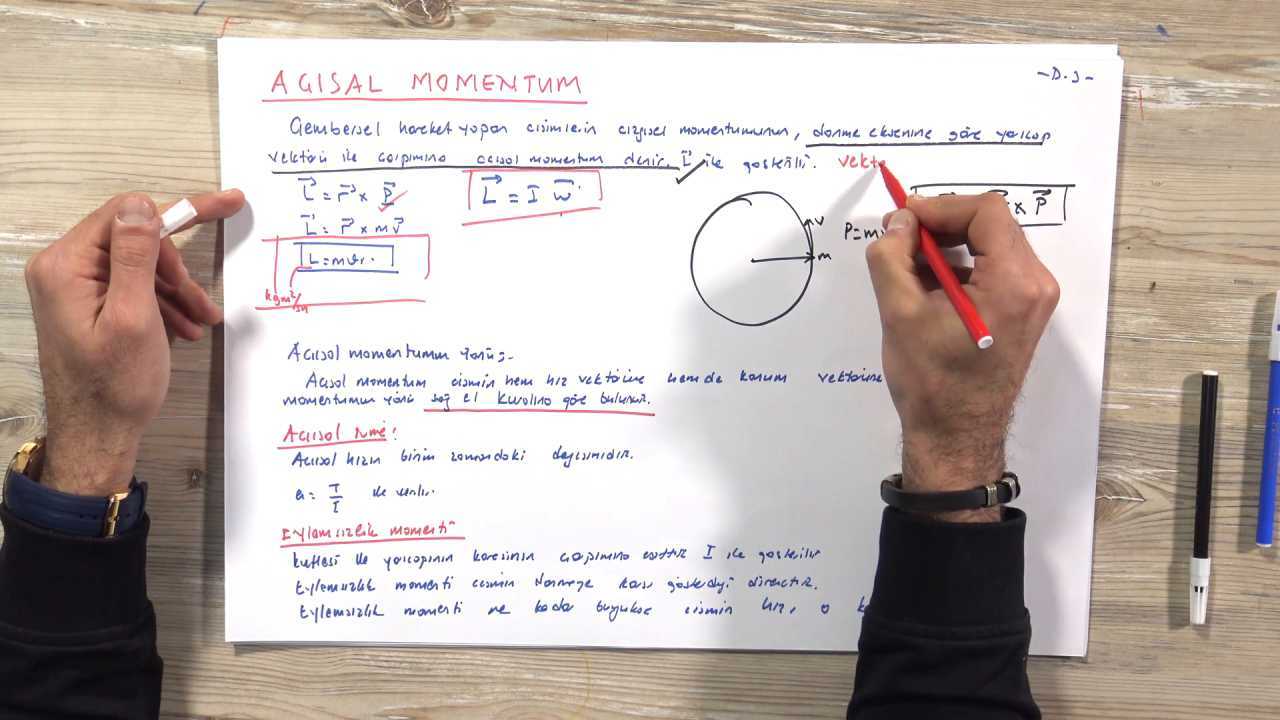 AÇISAL MOMENTUM
-D.J-
Çembersel hareket yapan cisimlerin çizgisel momentumunun, dönme eksenine göre yarıçap
vektörü ile çarpımına açısal momentum denir. L⃗ ile gösterilir. Vekt
L⃗ = r⃗ x P⃗
L⃗ = I w⃗
x P⃗
L⃗ = r⃗ x mv⃗
V
P=mv
L=mϑr.
m
kgm²/sn
Açısal momentumun yönü:
Açısal momentum cismin hem hız vektörüne hem de konum vektörüne
momentumun yönü sağ el kuralına göre bulunur.
Açısal ivme:
Açısal hızın birim zamandaki değişimidir.
a = T/I ile verilir.
Eylemsizlik momenti
kütlesi ile yarıçapının karesinin çarpımına eşittir I ile gösterilir
Eylemsizlik momenti cismin dönmeye karşı gösterdiği dirençtir.
Eylemsizlik momenti ne kadar büyükse cismin hızı, o k